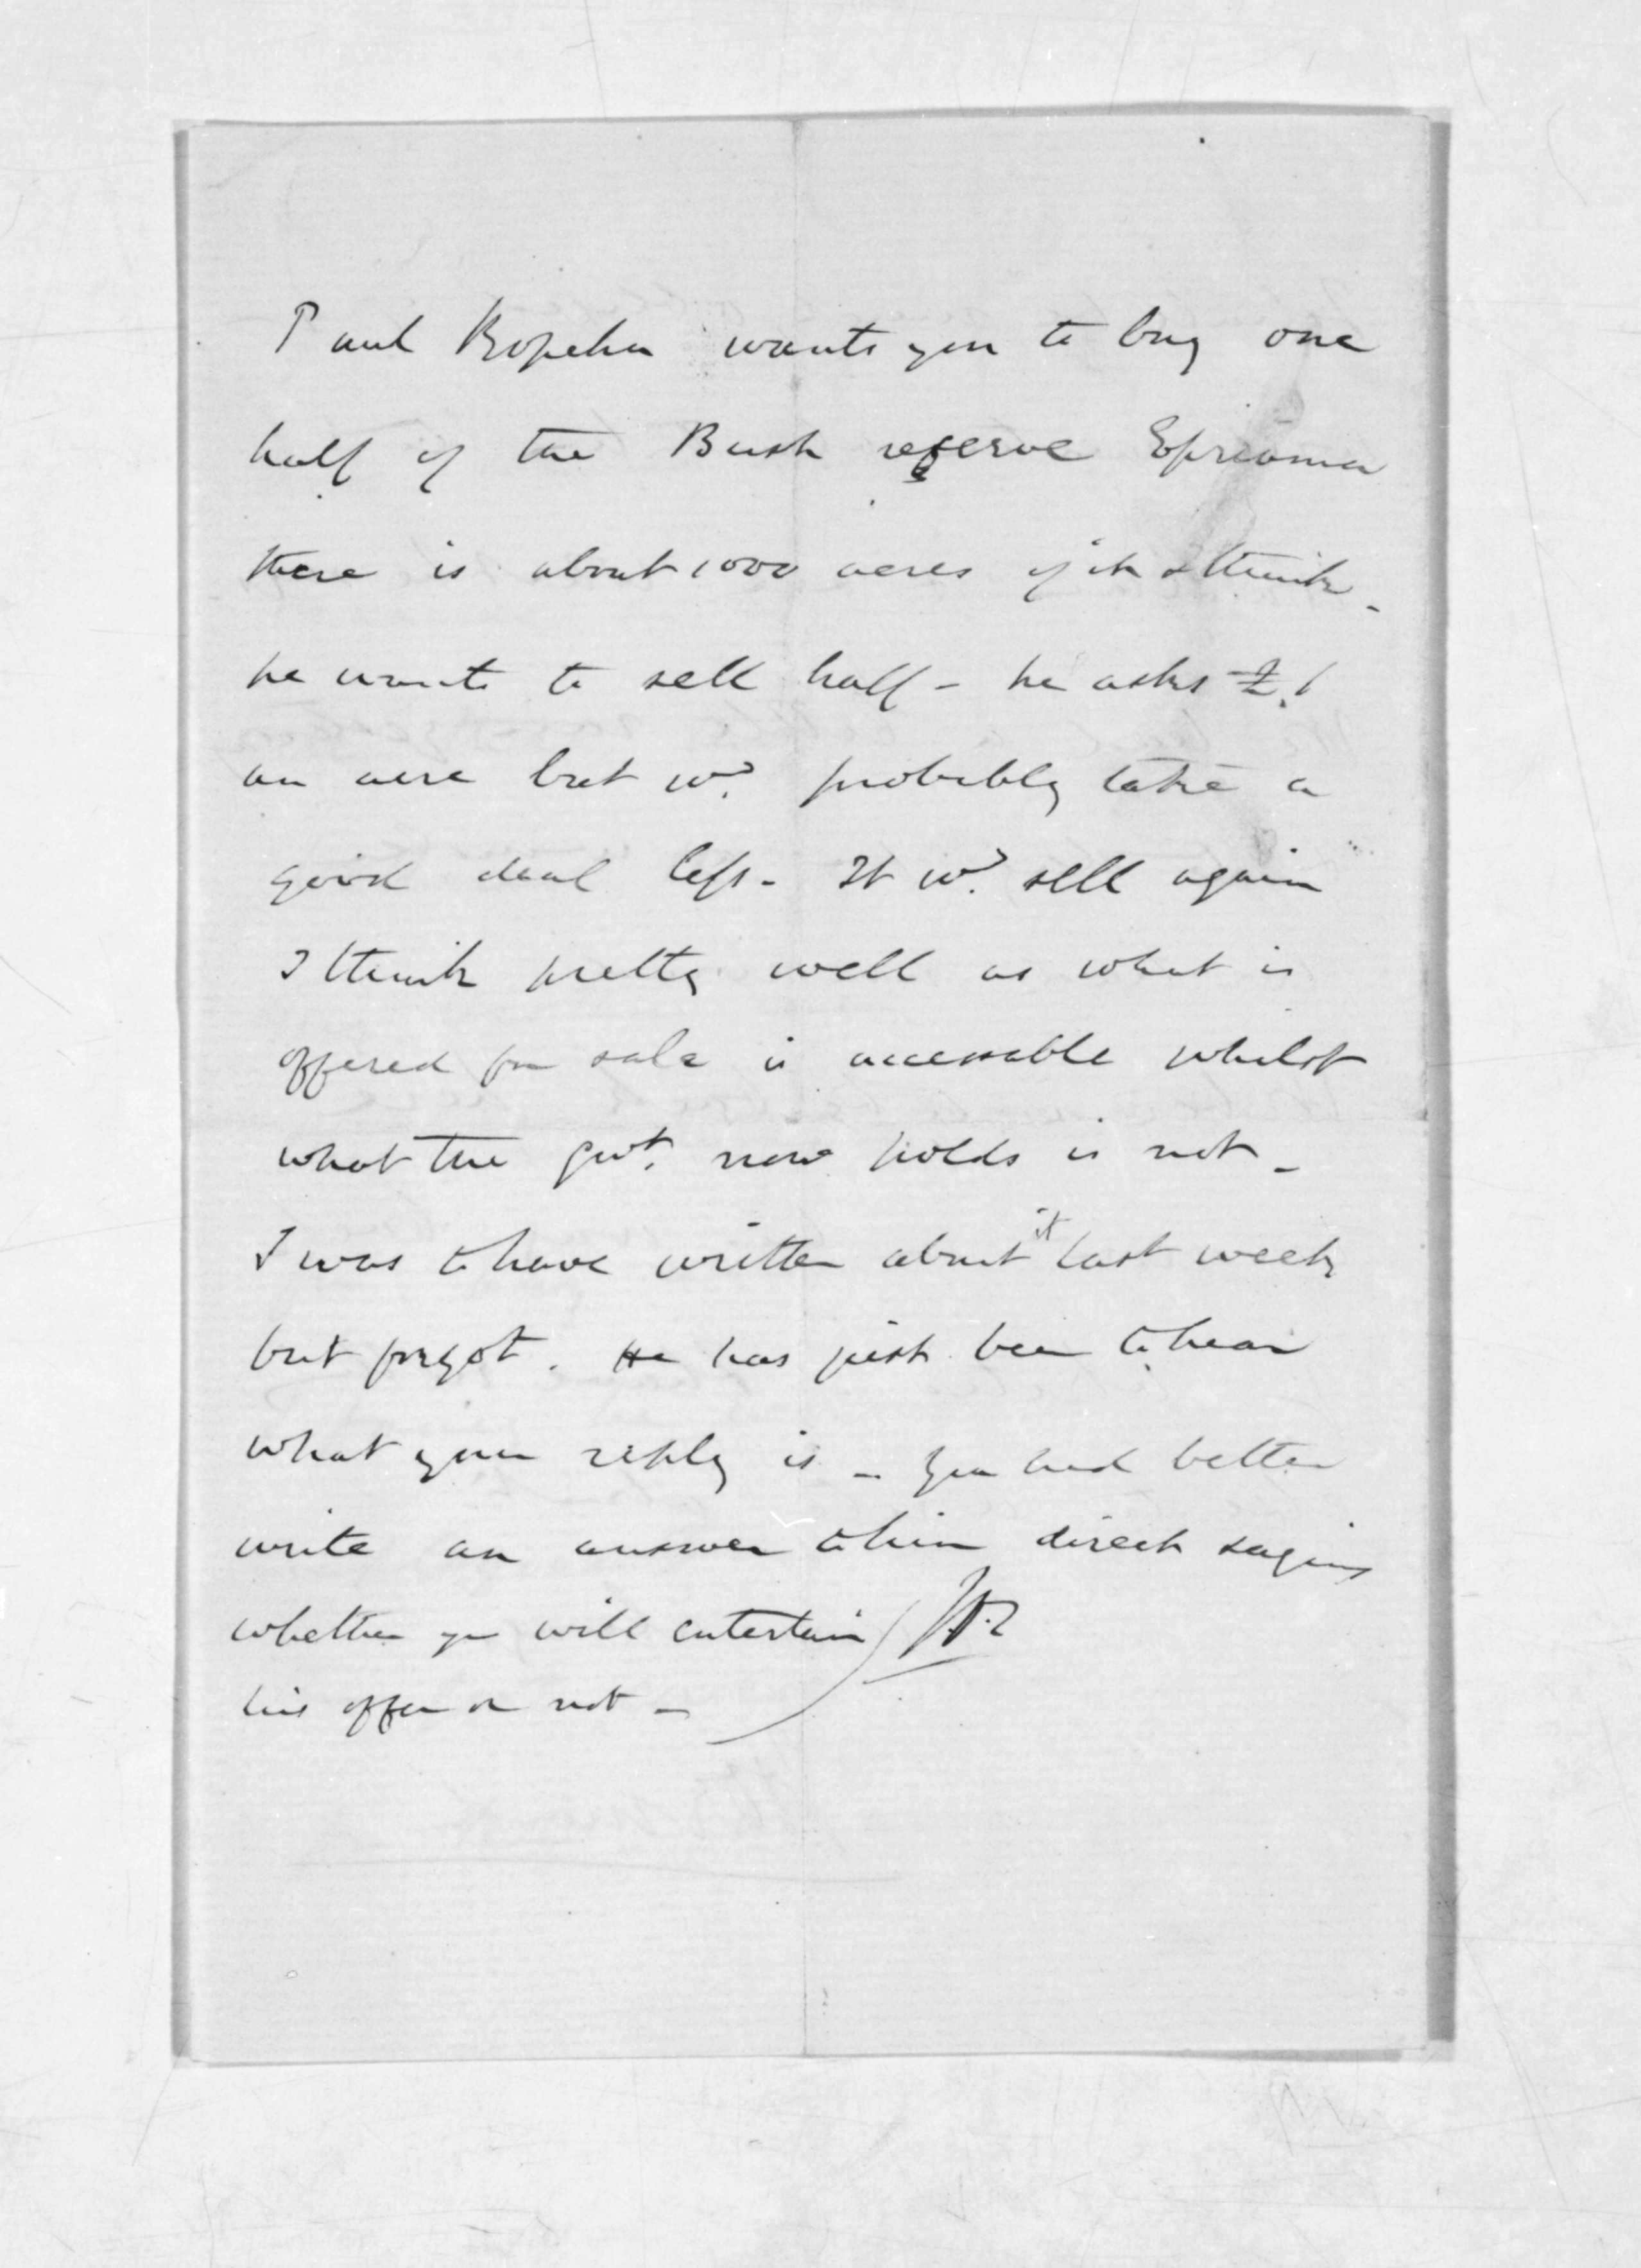 Paul Ropeha wants you to buy one
half of the Bush reserve
there is about 1000 acres of it I think -
he wants to sell half - he asks £1
an acre but wd. probably take a
good deal less - It wd. sell again
I think pretty well as what is
offered for sale is accessable whilst
what the govt. now holds is not -
I was to have written about it last week
but forgot. He has just been to hear
what your reply is - You had better
write an answer to him direct saying
whether you will entertain
his offer or not -